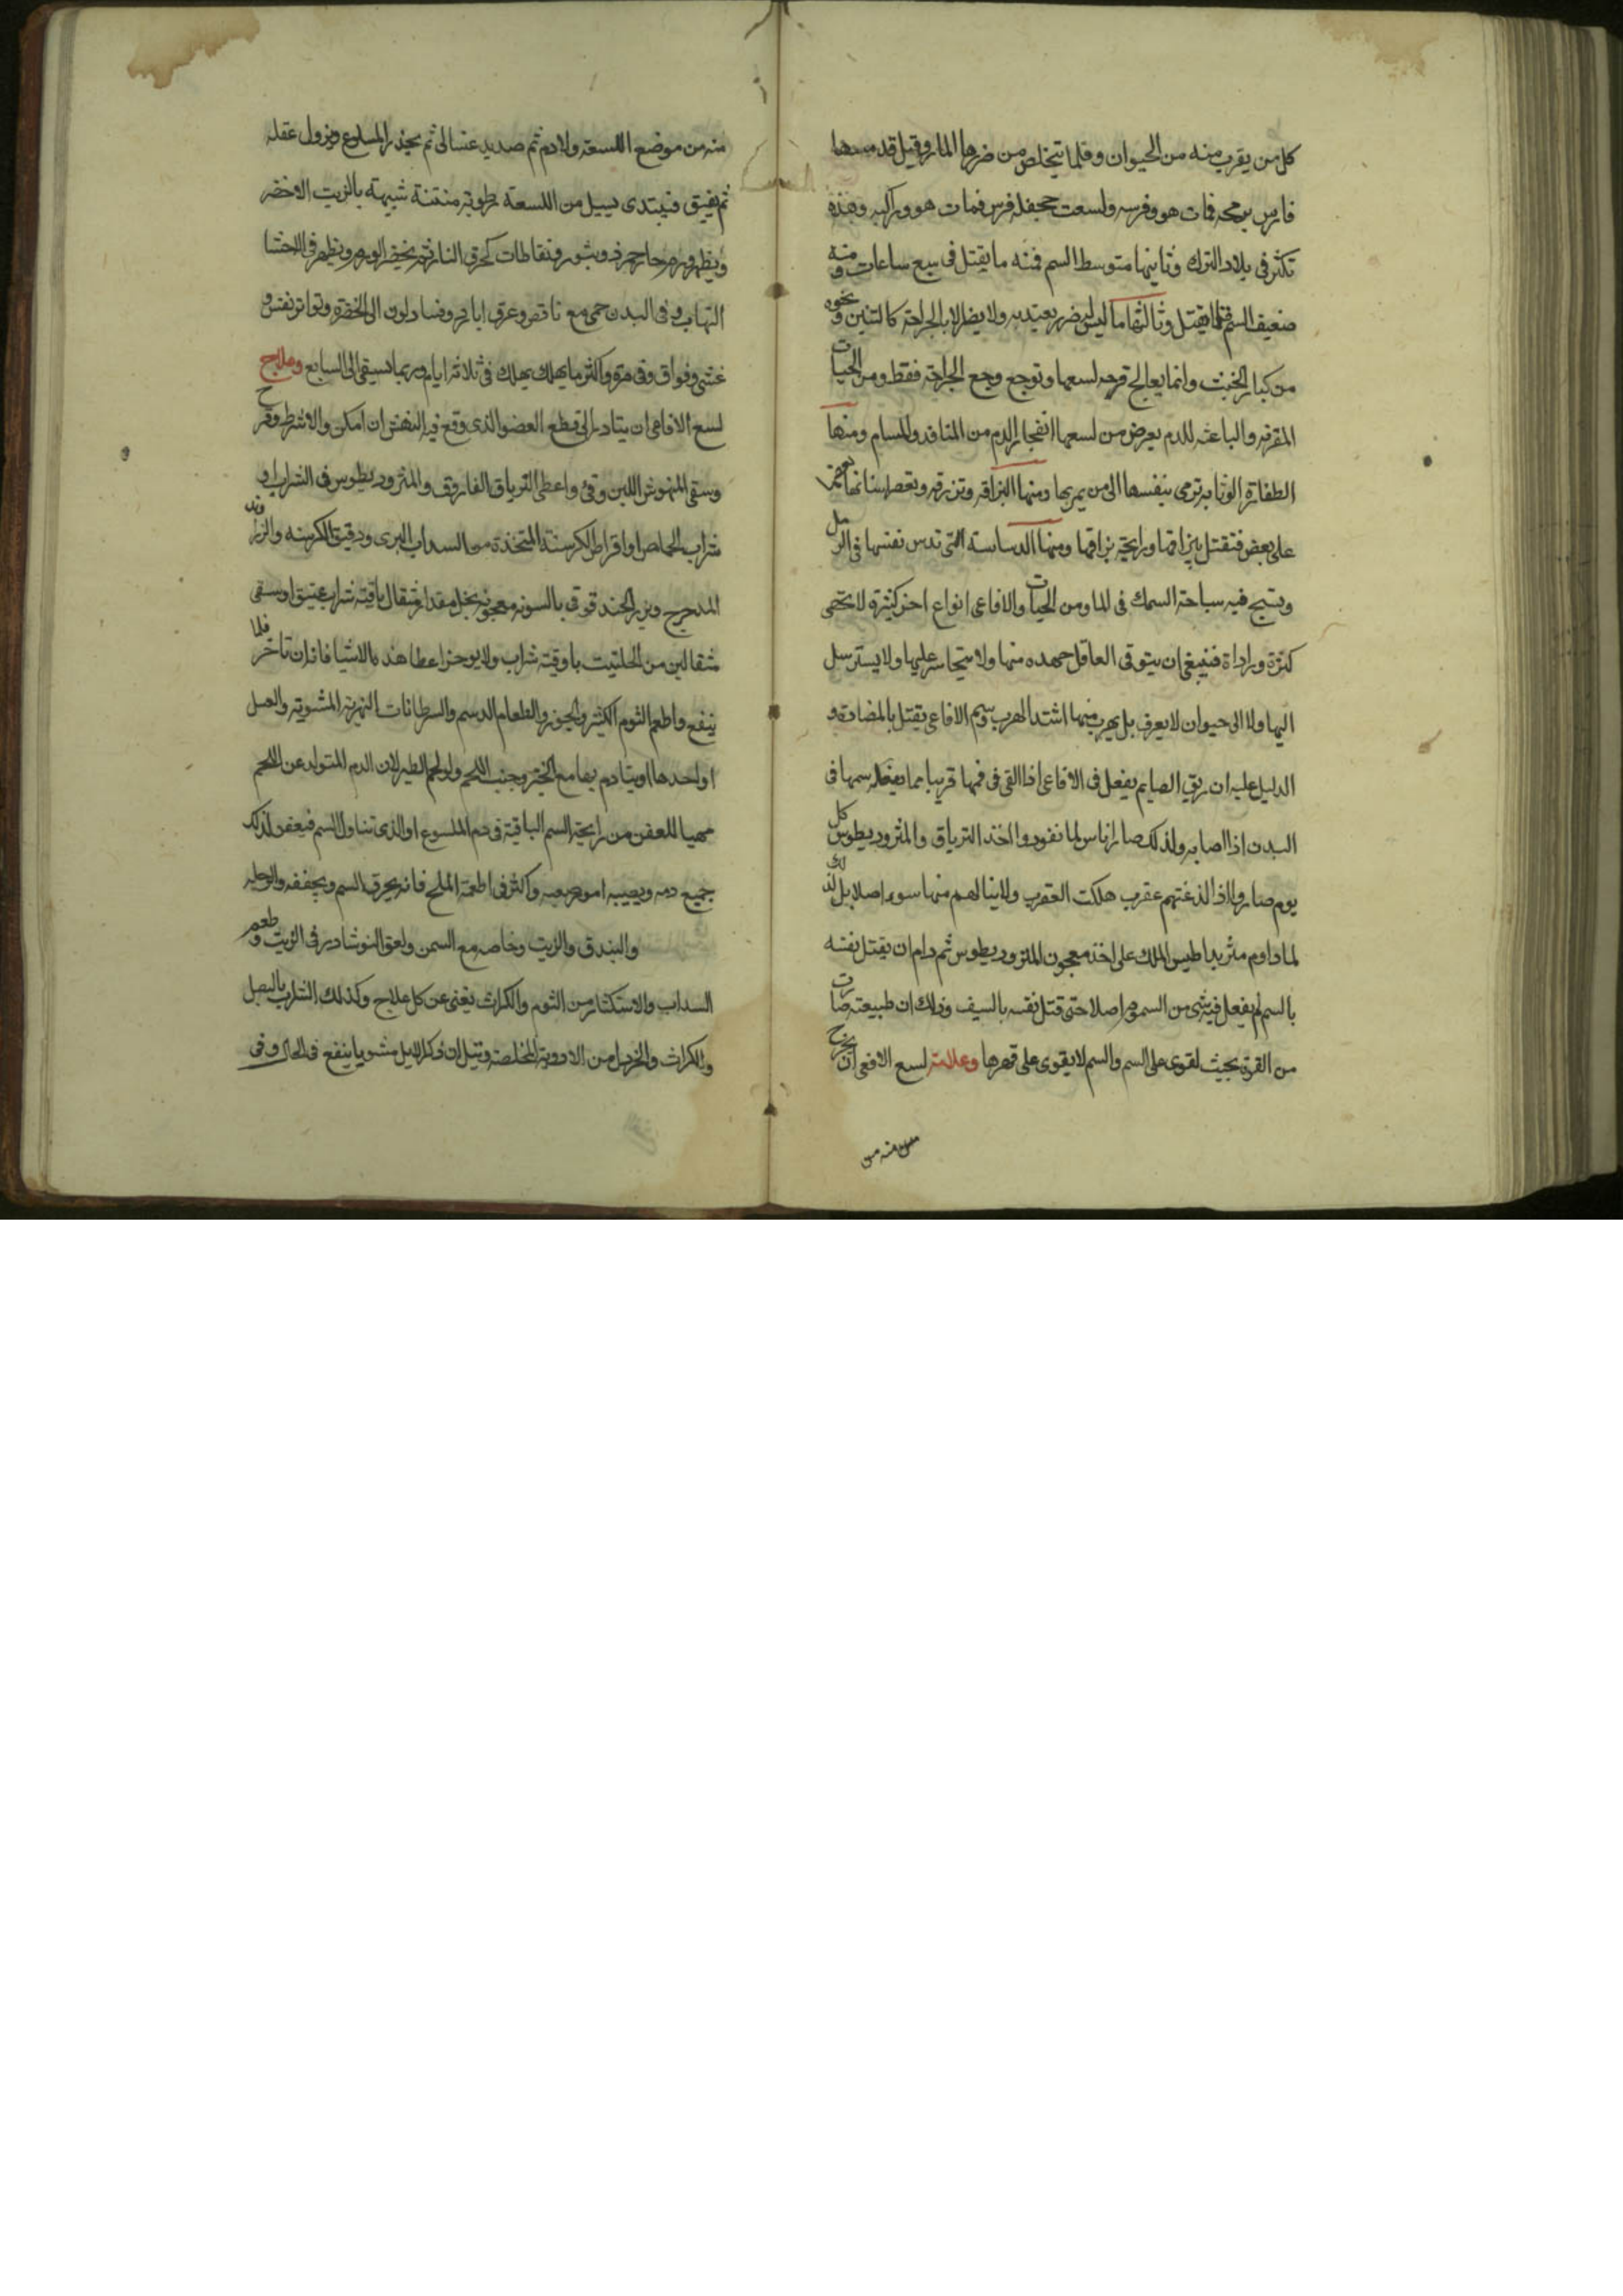 كل من يقرب منه من الحيوان وقلما يتخلص من ضررها المار وقيل قد مسها
فارس برمحه فمات هو وفرسه ولسعت جحفلة فرس فمات هو وراكبه وهذه
تكثر فى بلاد الترك وثانيها متوسط السم فمنه ما يقتل فى سبع ساعات ومنه
ضعيف السم قلما يقتل وثالثها ما ليس له ضرر يعتد به ولا يظر الا بالجراحة كالتنين ونحوه
من كبار الخبث وانما يعالج قرحه لسعها وتوجع وجع الجراحة فقط ومن الحيات
المقرنه والباعثه للدم يعرض من لسعها انفجار الدم من المنافد والمسام ومنها
الطفارة الوثابه ترمى بنفسها الى من يمر بها ومنها البزاقه وتزرقه وتعصر اسنانها بعضها
على بعض فتقتل ببزاقها ورايحة بزاقها ومنها الدساسة التى تدس نفسها فى الرمل
وتسبح فيه سباحة السمك فى الما ومن الحيات والافاعى انواع اخر كثيرة لا تحصى
كثرة ورداة فينبغى ان يتوقى العاقل جهده منها ولا يتجاسر عليها ولا يسترسل
اليها ولا الى حيوان لا يعرف بل يهرب منها اشتد الهرب وسم الافاعى يقتل بالمضادة و
الدليل عليه ان ريق الصايم يفعل فى الافاعى اذا القى فى فمها قريبا مما يفعله سمها فى
البدن اذا اصابه ولذلك صار اناس لما تعودوا اخذ الترياق والمثروديطوس كل
يوم صاروا اذا لذغتهم عقرب هلكت العقرب ولا ينالهم منها سوء اصلا بل لذلك
لما داوم مثريداطيس الملك على اخذ معجون المثروديطوس ثم دام ان يقتل نفسه
بالسم لم يفعل فيه شى من السموم اصلا حتى قتل نفسه بالسيف وذلك ان طبيعته صارت
من القوة بحيث تقوى على السم والسم لا يقوى على قهرها وعلامة لسع الافعى ان يخرج
منه من
منه من موضع اللسعة ولا دم ثم صديد غسالى ثم يخذر الملسوع ويزول عقله
ثم يفيق فيبتدى يسيل من اللسعة رطوبة منتنة شبيهة بالزيت الاخضر
ويظهر ورم حار احمر ذو بثور ونفاطات كحرق النار ثم يخضر الورم ويظهر فى الاحشا
التهاب وفى البدن حمى مع نافض وعرق بارد وفساد لون الى الخضرة وتواتر نفس و
غشى وفواق وقى مرة واكثر ما يهلك يهلك فى ثلاثة ايام وربما تبقى الى السابع وعلاج
لسع الافاعى ان يتادر الى قطع العضو الذى وقع فيه النهش ان امكن والا شرط وقرح
وسقى المنهوش اللبن وقئ واعطى الترياق الفاروق والمثروديطوس فى الشراب او
شراب الحماض او اقراط الكرسنة المتخذة من السداب البرى ودقيق الكرسنه والزراوند
المدحرج وبزر الحندقوقى بالسويه معجونه بخل مقدار مثقال باوقية شراب عتيق او سقى
مثقالين من الحلتيت باوقية شراب ولا يوخر اعطا هذه الاشيا فانه ان تاخر قلما
ينفع واطعم الثوم الكثير والجوز والطعام الدسم والسرطانات النهرية المشوية والعسل
او احدها او يتادم بها مع الخبز وجنب اللحم ولو لحم الطير لان الدم المتولد عن اللحم
مهيا للعفن من رايحة السم الباقية فى دم الملسوع او الذى تناول السم فيعفن لذلك
جميع دمه ويصيبه امور صعبه واكثر فى اطعمة الملح فانه يحرق السم ويجففه والوحله
والبندق والزيت وخاصه مع السمن ولعق النوشادر فى الزيت وطعم
السداب والاستكثار من الثوم والكراث يغنى عن كل علاج وكذلك الشراب بالبصل
والكراث والخردل من الادوية المخلصة وقيل ان ذكر الايل مشويا ينفع فى الحال وفى